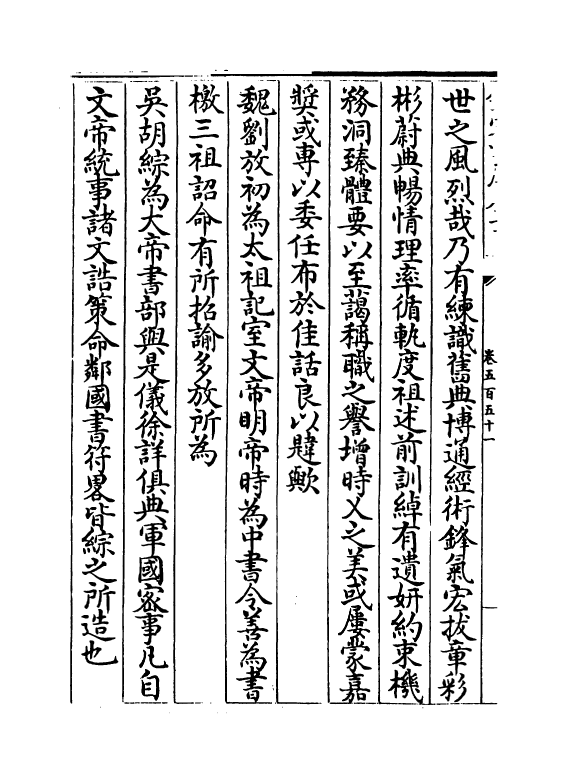 卷五百五十一
世之風烈哉乃有練識舊典博通經術鋒氣宏拔章彩
彬蔚典暢情理率循軌度祖述前訓綽有遺妍約束機
務洞臻體要以至藹稱職之譽增時乂之美或屢蒙嘉
奬或專以委任布於佳話良以韙歟
魏劉放初為太祖記室文帝明帝時為中書令善為書
檄三祖詔命有所招諭多放所為
吳胡綜為大帝書部與是儀徐詳俱典軍國密事凡自
文帝統事諸文誥策命鄰國書符畧皆綜之所造也